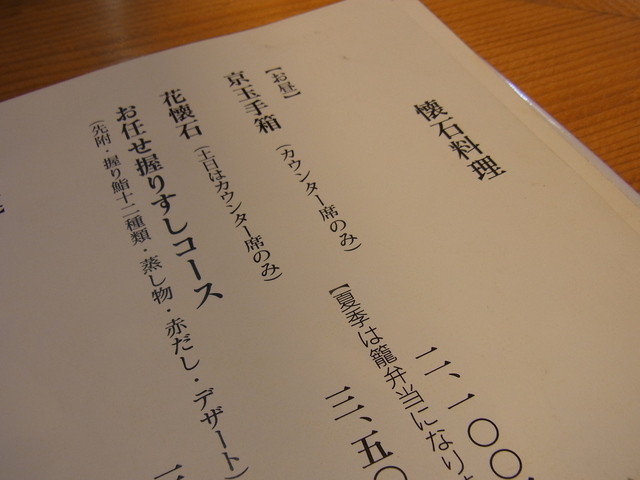 懐石料理
【お昼】
京玉手箱
(カウンター席のみ)
二、一〇〇
【夏季は籠弁当になり
花懐石
(土日はカウンター席のみ)
三、五〇
お任せ握りすしコース
(先附・握り鮨十二種類・蒸し物・赤だし・デザート)